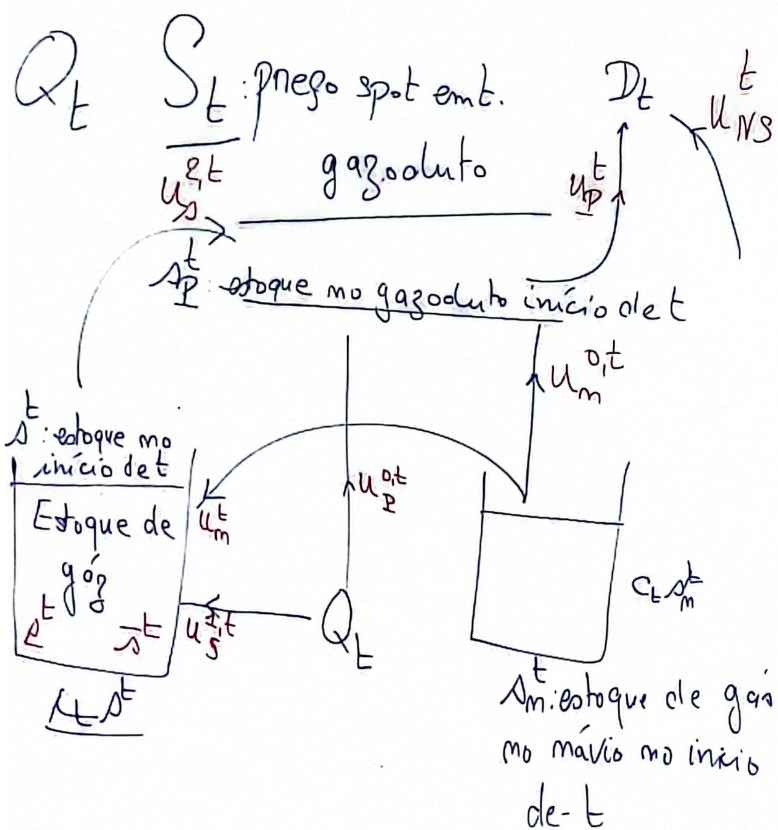 Q_t S_t : preço spot em t.
D_t
u_NS^t
u_s^{2,t}
gazoduto
u_P^t
s_P^t : estoque no gazoduto início de t
u_m^{0,t}
s^t : estoque no
início de t
Estoque de
gáz
u_m^t
u_P^{0,t}
u_s^{1,t}
Q_t
c_t s_m^t
s_m^t : estoque de gás
no návio no início
de t